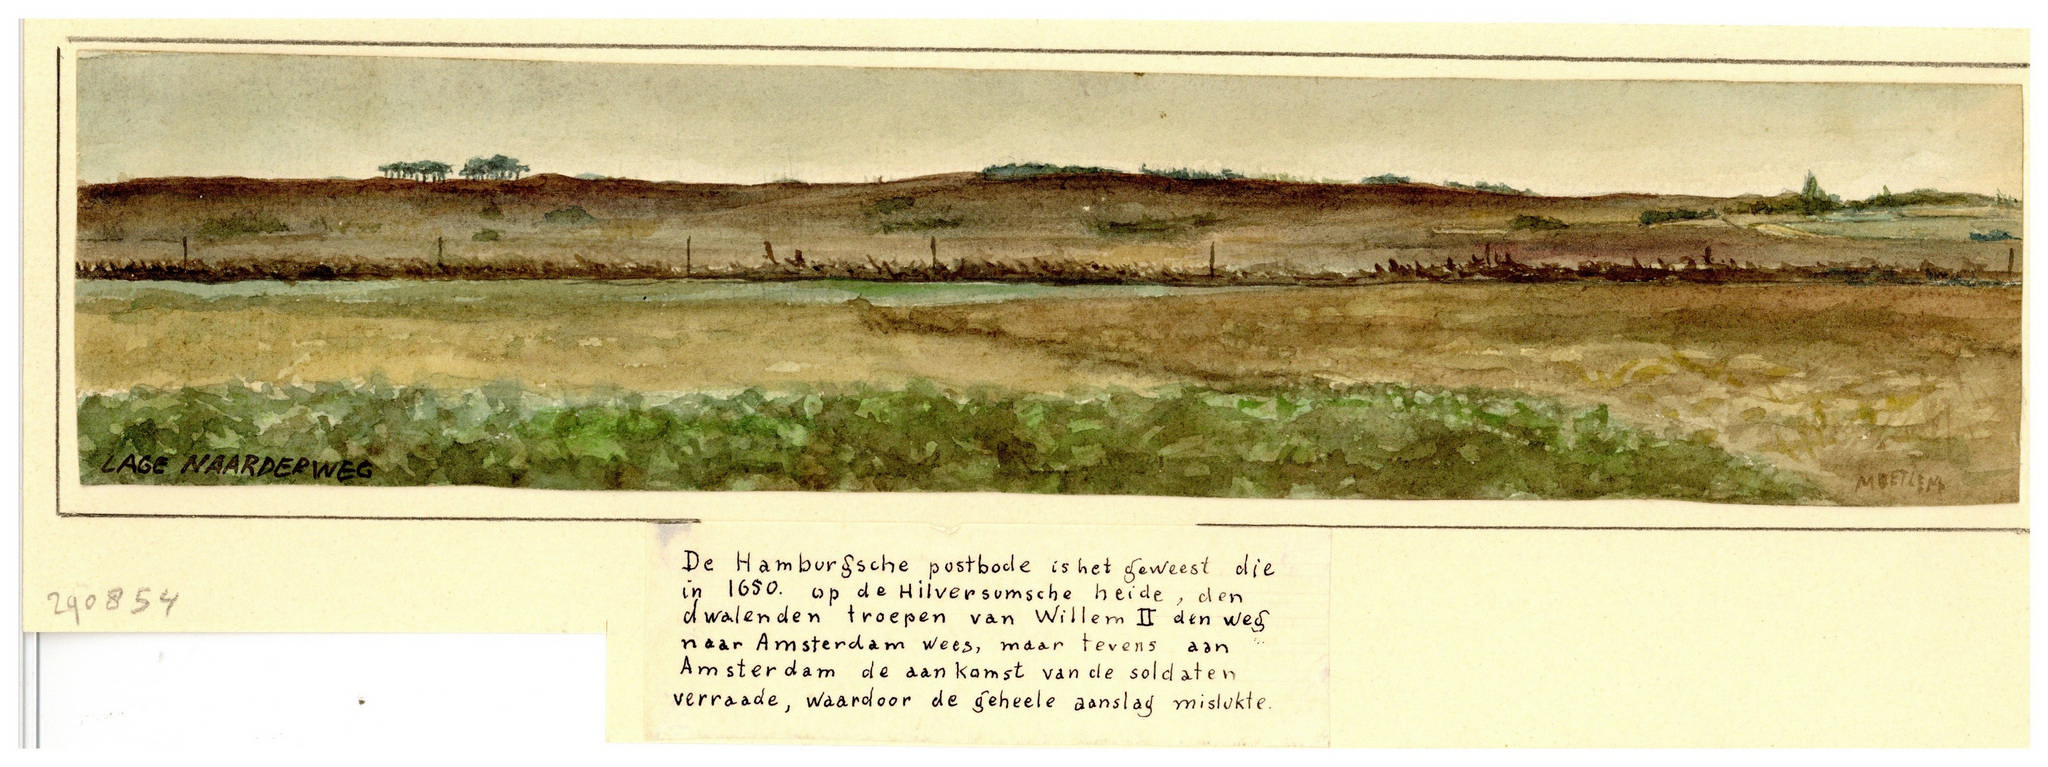 LAGE NAARDERWEG
290854
De Hamburgsche postbode is het geweest die
in 1650. op de Hilversumsche heide, den
dwalenden troepen van Willem II den weg
naar Amsterdam wees, maar tevens aan
Amsterdam de aankomst van de soldaten
verraade, waardoor de geheele aanslag mislukte.